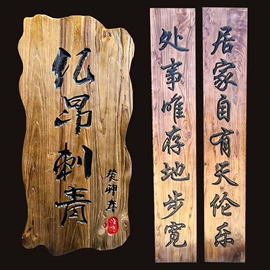 亿昂刺青
居家自有天伦乐
处事唯存地步宽